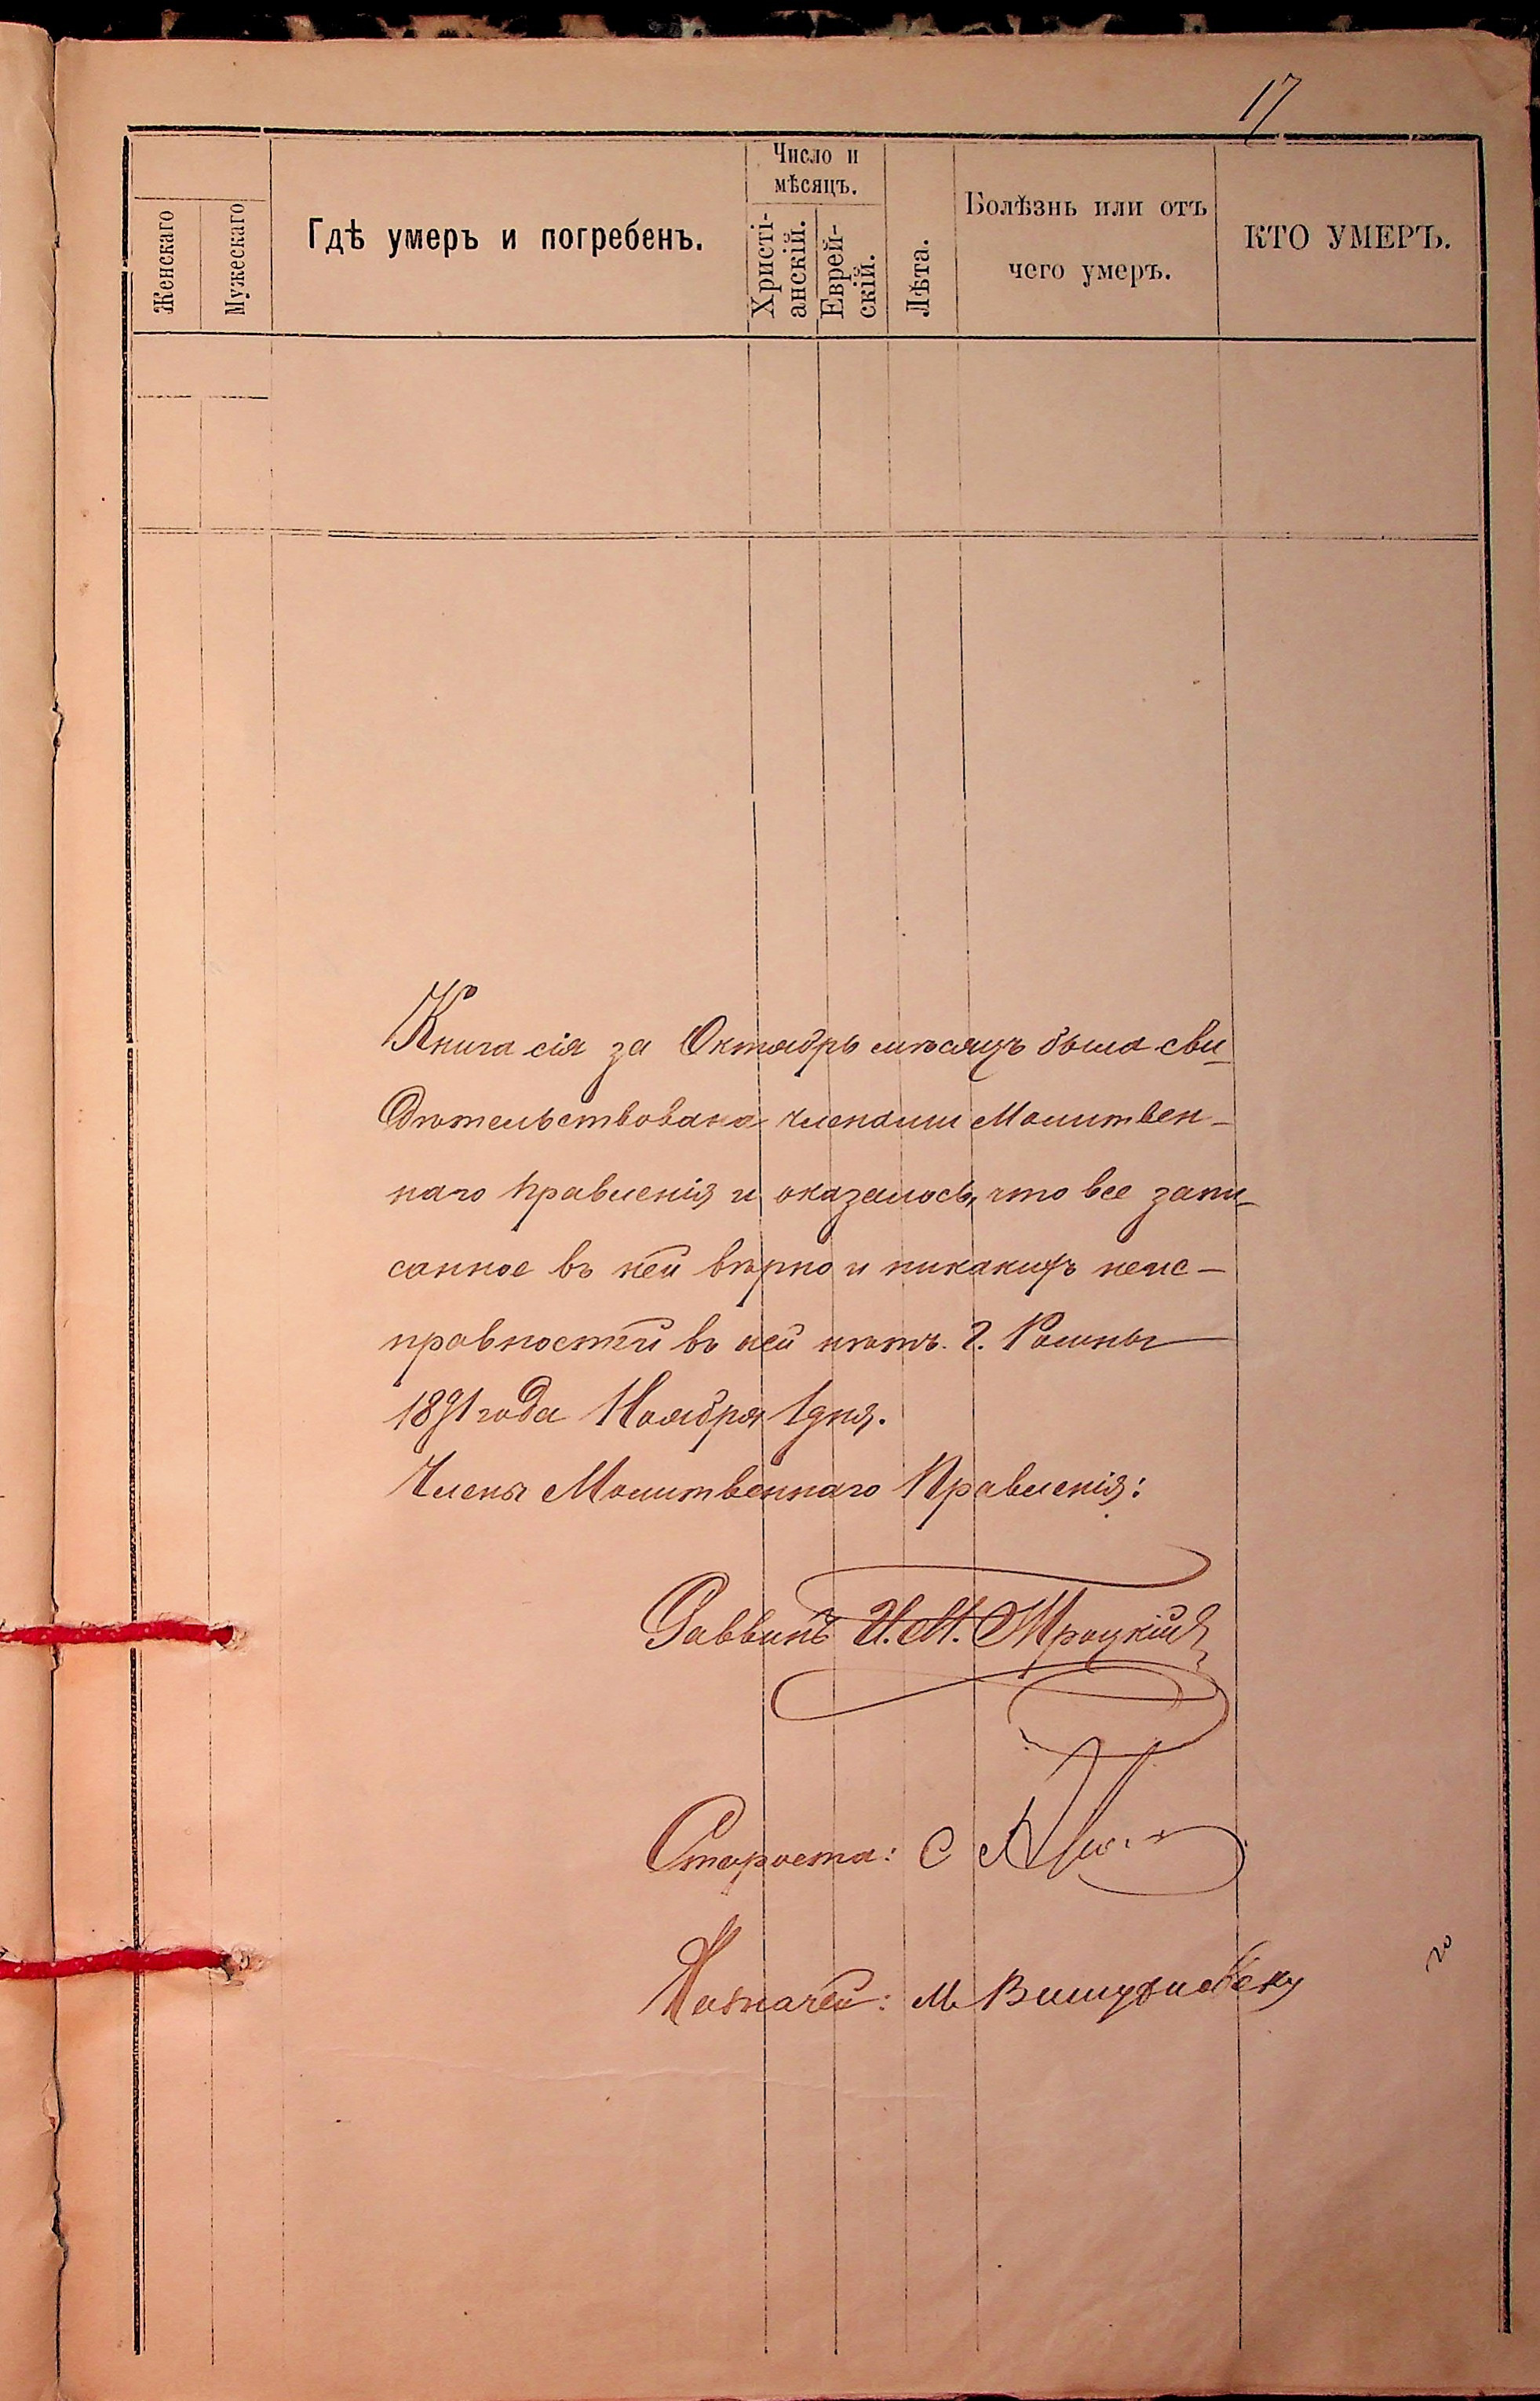 17
Число и
мѣсяцъ.
Женскаго
Мужескаго
Гдѣ умеръ и погребенъ.
Христі-
анскій.
Еврей-
скій.
Лѣта.
Болѣзнь или отъ
чего умеръ.
КТО УМЕРЪ.
Книга сія за Октябрь мѣсяцъ была сви-
дѣтельствована членами Молитвен-
наго Правленія и оказалось, что все запи-
санное въ ней вѣрно и никакихъ неис-
правностей въ ней нѣтъ. Г. Ромны
1891 года Ноября 1 дня.
Члены Молитвеннаго Правленія:
Раввинъ И. М. Троцкій
Староста: С
Казначей: М